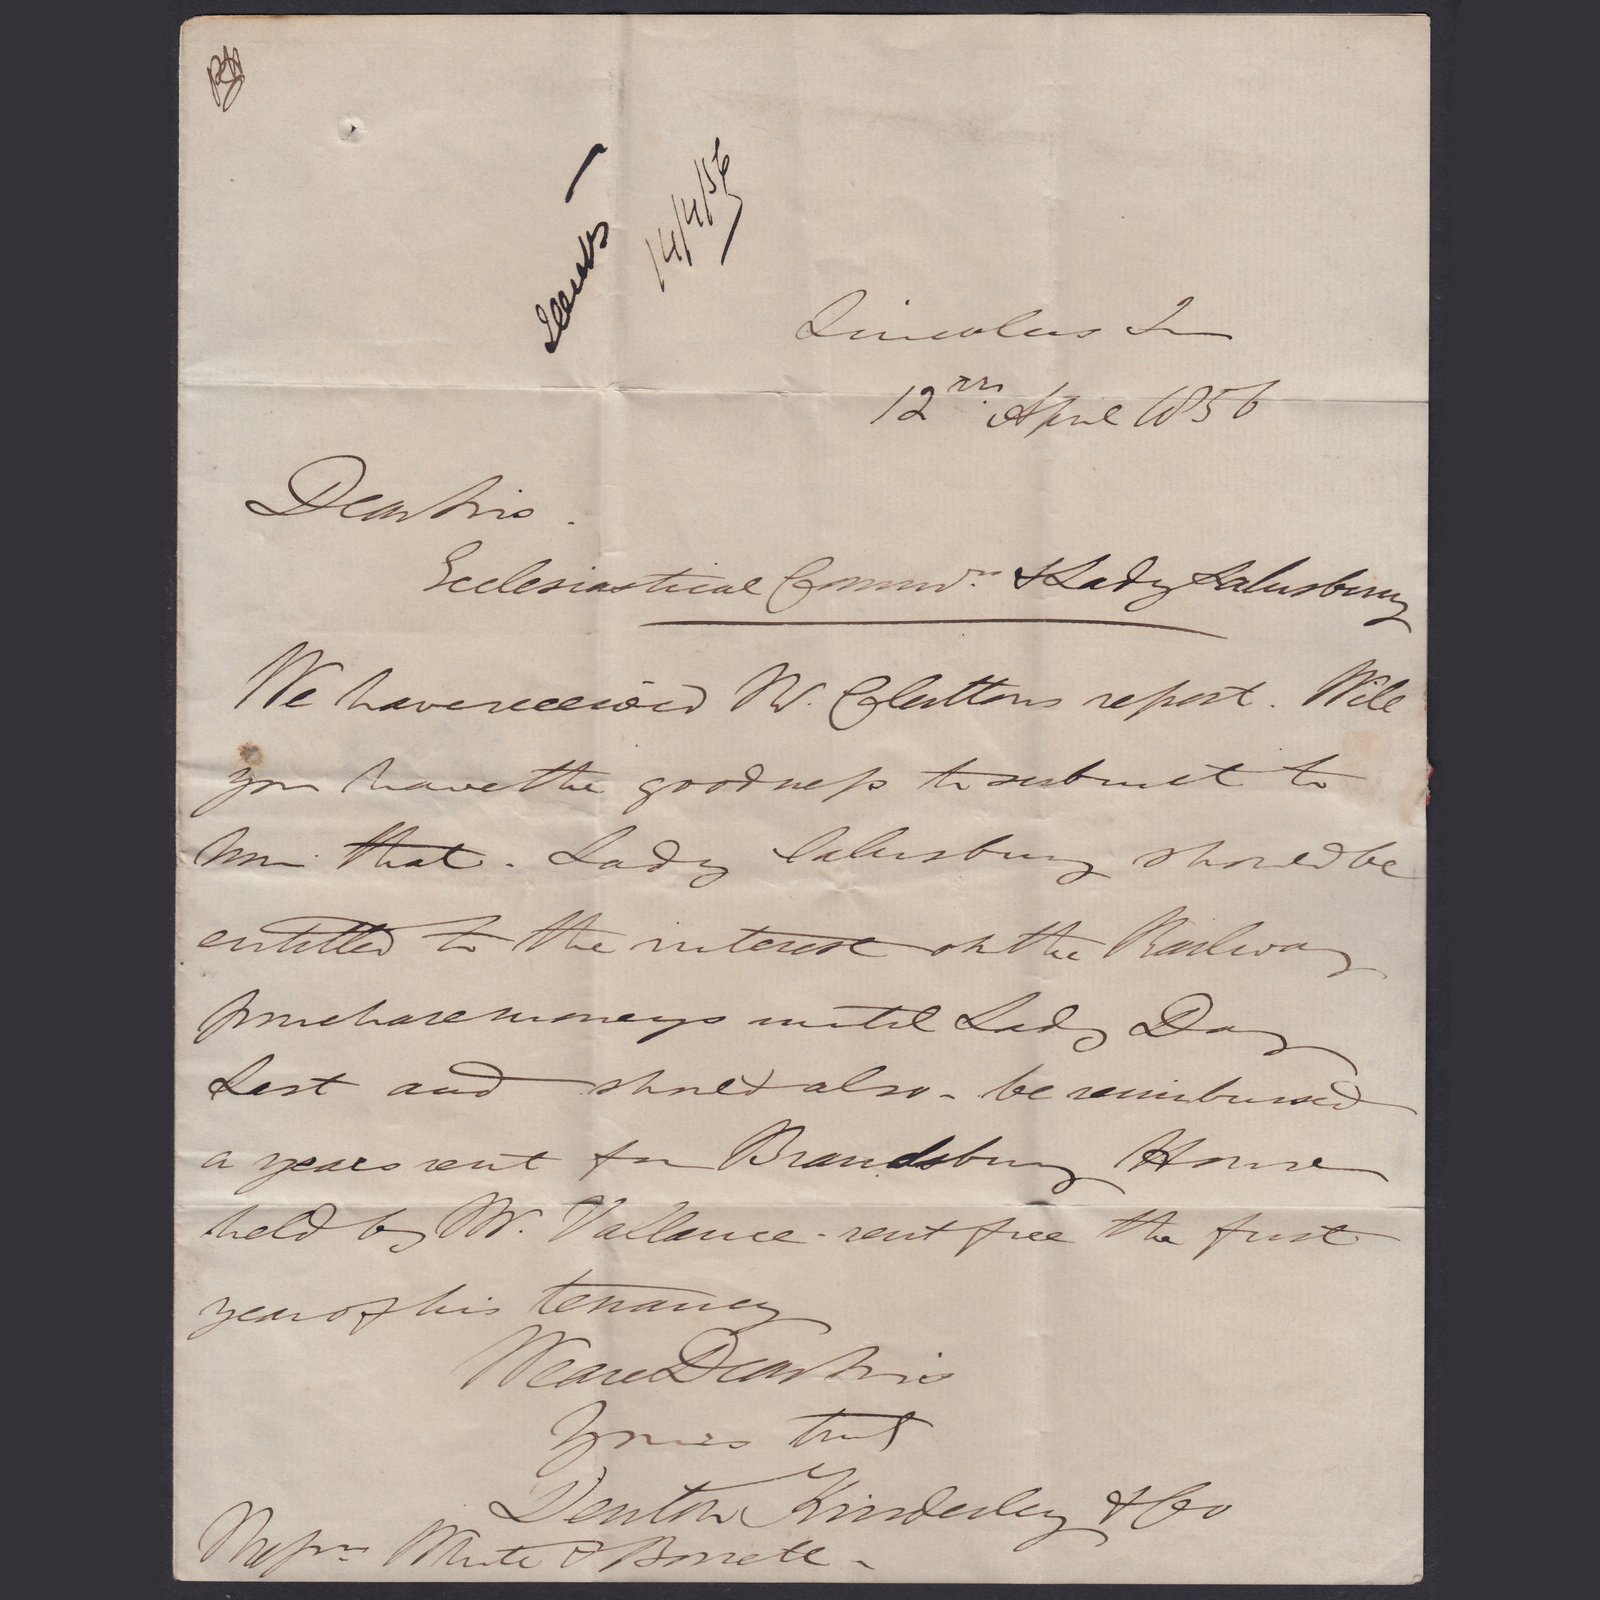 14/4/56
Lincolns Inn
12th April 1856
Dear Sirs.
Ecclesiastical Commrs. & Lady Salusbury
We have received Mr. Cluttons report. Will
you have the goodness to submit to
him that. Lady Salusbury should be
entitled to the interest on the Railway
purchase moneys until Lady Day
Last and should also - be reimbursed
a years rent for Brandsbury House
held by Mr. Vallance - rent free the first
year of his tenancy
We are Dear Sirs
Yours truly
Denton Kinderley & Co
Messrs White & Borrett -